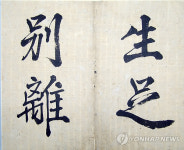 生足
別離
YONHAP NEWS